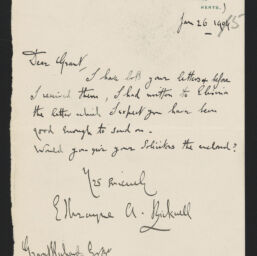 HERTS.
Jan 26 1905
Dear Grant,
I have both your letters & before
I received them, I had written to Elvira
the letter which I expect you have been
good enough to send on.
Would you give your Solicitors the enclosed?
Yrs sincerely
A. Bicknell
Grant Richards Esqre